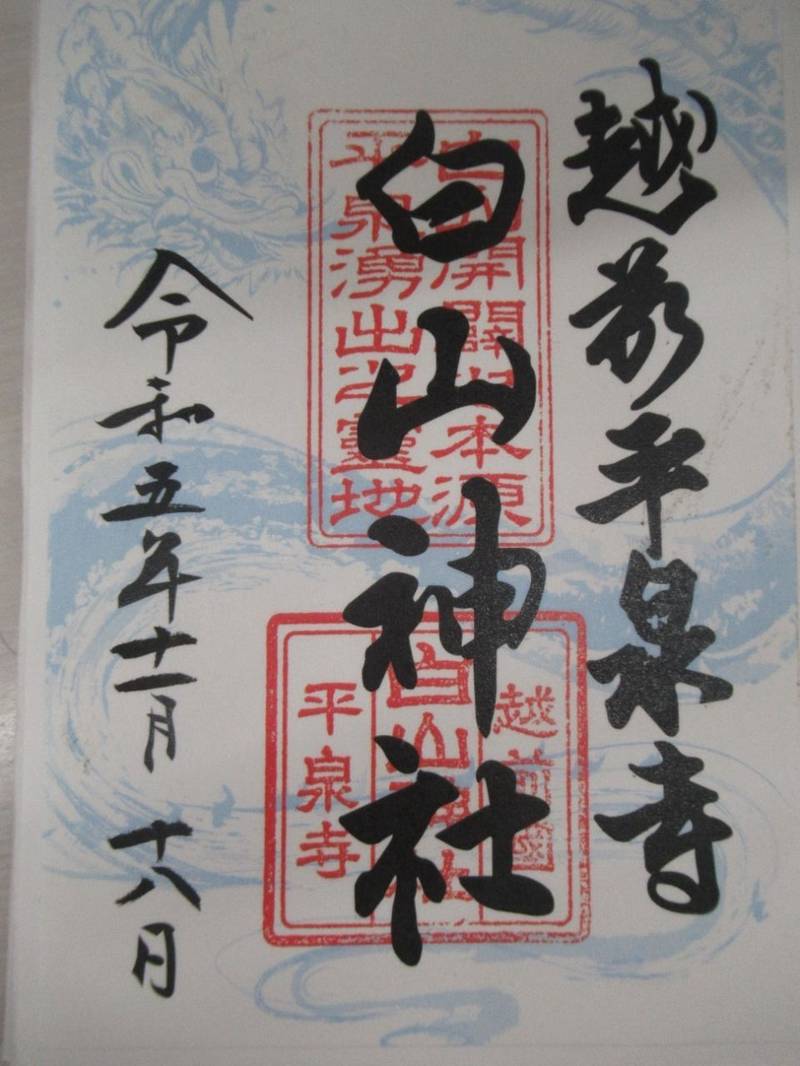 越前平泉寺
白山神社
白山開闢之本源
平泉湧出之靈地
越前國
白山神社
平泉寺
令和五年十一月十八日